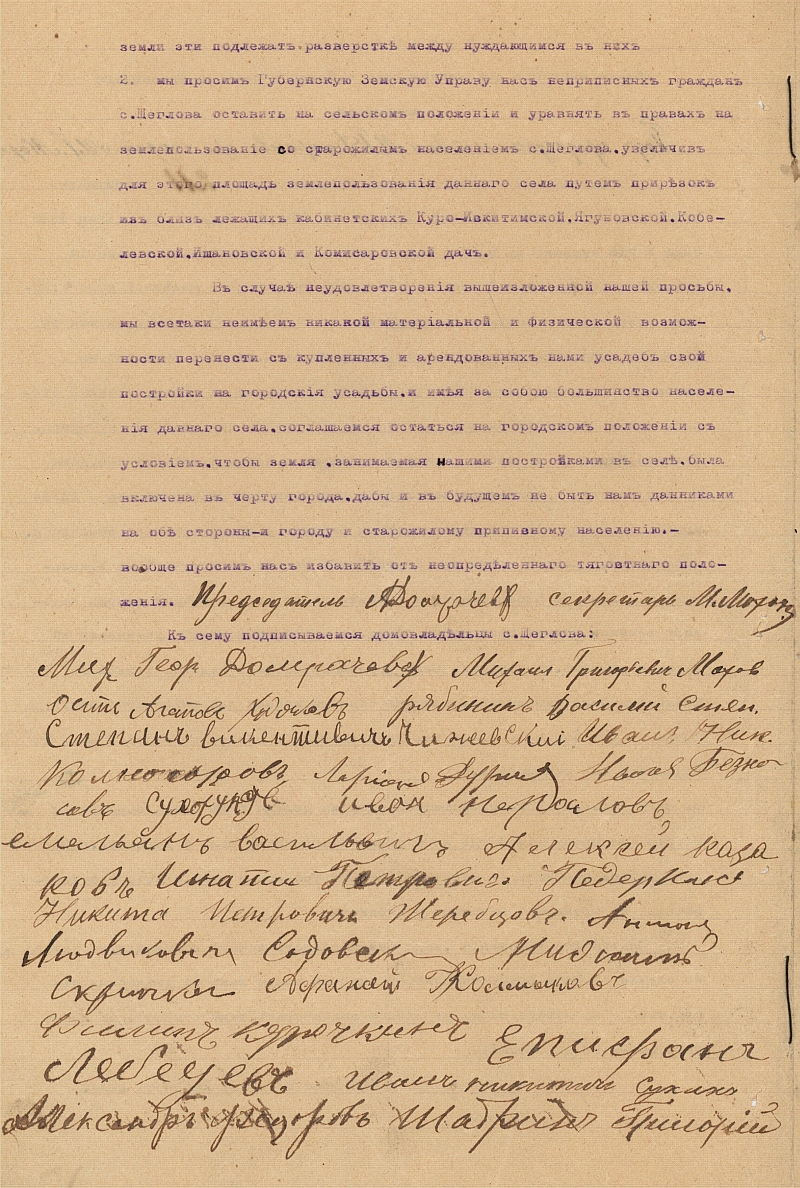 земли эти подлежатъ разверсткѣ между нуждающимся въ нехъ
2. мы просимъ Губернскую Земскую Управу насъ неприписныхъ гражданъ
с.Щеглова оставить на сельскомъ положеніи и уравнять въ правахъ на
землепользованіе со старожилымъ населеніемъ с.Щеглова,увеличивъ
для этого площадь землепользованія даннаго села путемъ прирѣзокъ
изъ близъ лежащихъ кабинетскихъ Куро-Искитимской,Ягуновской,Кобе-
левской,Ишановской и Комисаровской дачъ.
Въ случаѣ неудовлетворенія вышеизложенной нашей просьбы,
мы всетаки неимѣемъ никакой матеріальной и физической возмож-
ности перенести съ купленныхъ и арендованныхъ нами усадебъ свой
постройки на городскія усадьбы,и имѣя за собою большинство населе-
нія даннаго села,соглашаемся остаться на городскомъ положеніи съ
условіемъ,чтобы земля ,занимаемая нашими постройками въ селѣ,была
включена въ черту города,дабы и въ будущемъ не быть намъ данниками
на обѣ стороны-и городу и старожилому припивному населенію.-
вообще просимъ насъ избавить отъ неопредѣленнаго тяготнаго поло-
женія. Председатель секретарь М.
Къ сему подписываемся домовладѣльцы с.Щеглова:
Мих Геор Домрачевъ Михаил Григорьевич
рябининъ Василий Степ.
Степанъ викентивичъ Чижевский Иванъ Ник.
Колмогоровъ
совъ Сухоруковъ иван
емельянъ васильевичъ Алексей каза
ковъ Игнатий Петровичъ
Никита Петровичъ Жеребцовъ. Антон
Людвиковичъ Садовск
Афанасий Колмаковъ
Филипъ курочкинъ Епифанъ
Лебедевъ Иванъ никитичъ
Александръ федоровъ Шабринъ Григорий